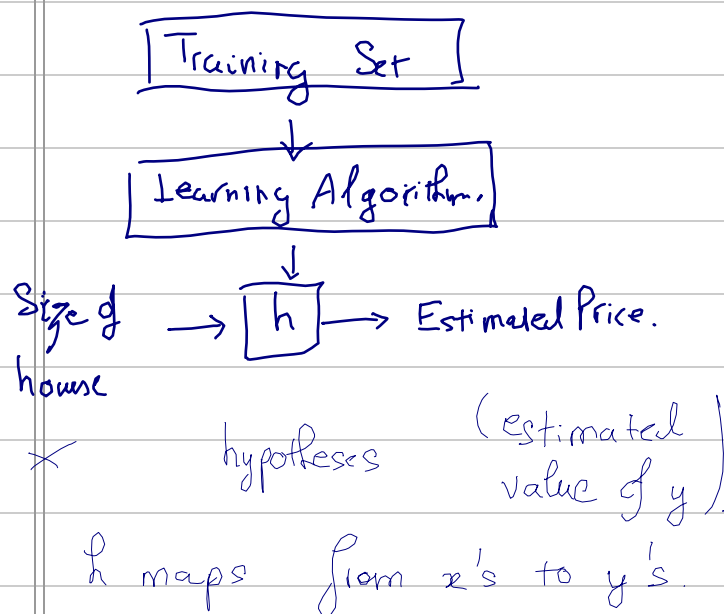 Training Set
Learning Algorithm.
Size of
house
h
Estimated Price.
x
hypotheses
(estimated
value of y)
h maps from x's to y's.